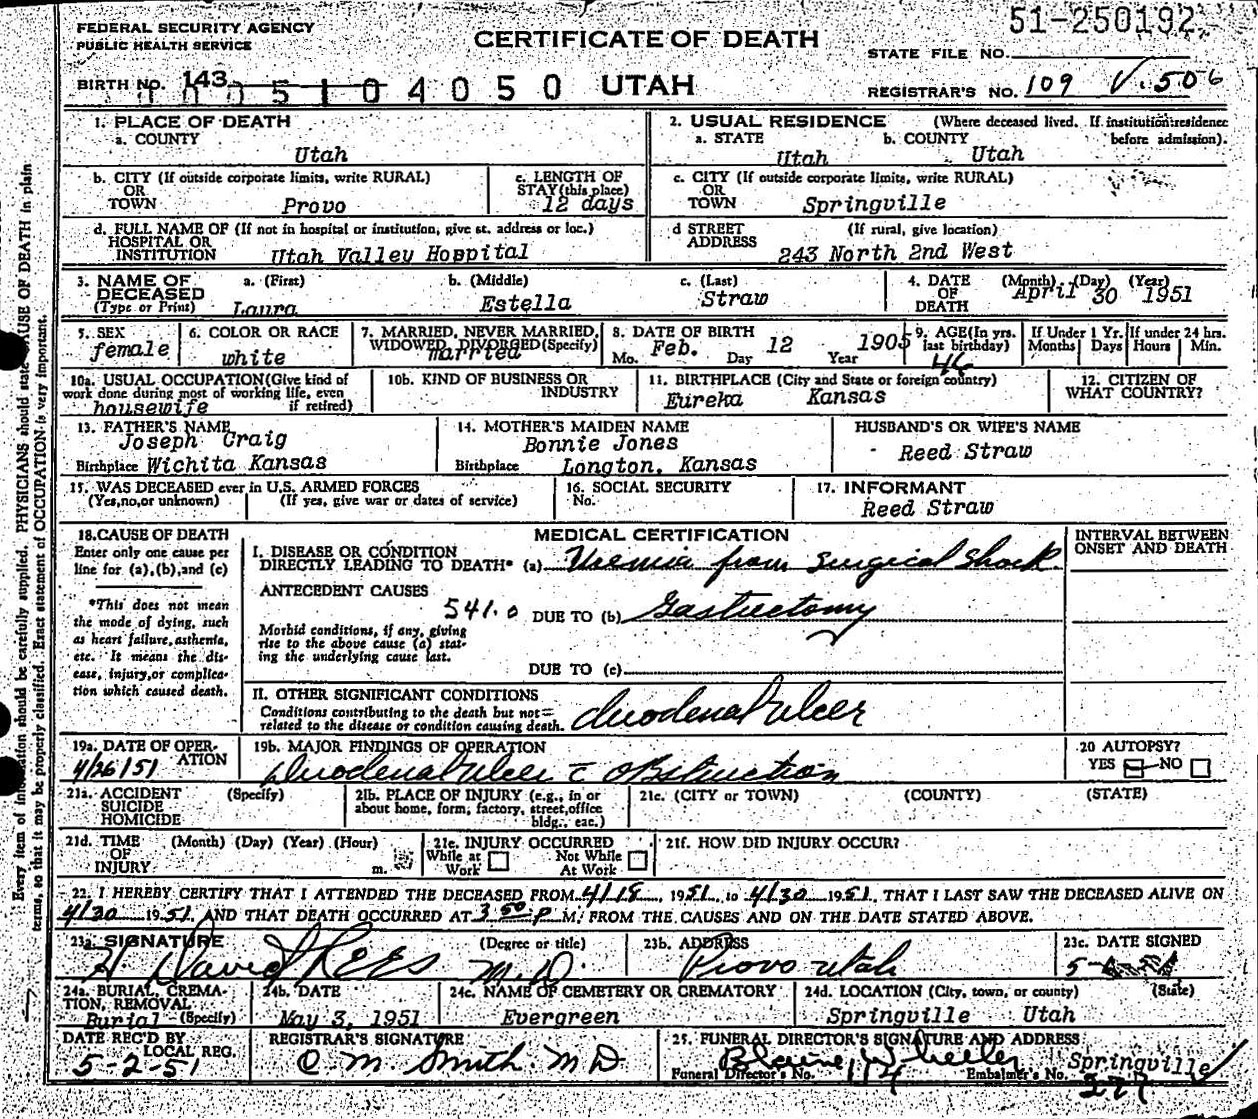 51-250192
FEDERAL SECURITY AGENCY
PUBLIC HEALTH SERVICE
CERTIFICATE OF DEATH
STATE FILE NO.
BIRTH NO. 143
0 0 0 5 1 0 4 0 5 0 UTAH
REGISTRAR'S NO. 109 V. 506
1. PLACE OF DEATH
a. COUNTY
Utah
2. USUAL RESIDENCE (Where deceased lived. If institution: residence before admission).
a. STATE Utah b. COUNTY Utah
b. CITY (If outside corporate limits, write RURAL)
OR
TOWN Provo
c. LENGTH OF
STAY (this place)
12 days
c. CITY (If outside corporate limits, write RURAL)
OR
TOWN Springville
d. FULL NAME OF (If not in hospital or institution, give st. address or loc.)
HOSPITAL OR
INSTITUTION Utah Valley Hospital
d STREET (If rural, give location)
ADDRESS 243 North 2nd West
3. NAME OF DECEASED (Type or Print)
a. (First) Laura b. (Middle) Estella c. (Last) Straw
4. DATE OF DEATH (Month) (Day) (Year)
April 30 1951
5. SEX female
6. COLOR OR RACE white
7. MARRIED, NEVER MARRIED, WIDOWED, DIVORCED (Specify) married
8. DATE OF BIRTH
Mo. Feb. Day 12 Year 1905
9. AGE (In yrs. last birthday) 46
If Under 1 Yr. Months Days
If under 24 hrs. Hours Min.
10a. USUAL OCCUPATION (Give kind of work done during most of working life, even if retired) housewife
10b. KIND OF BUSINESS OR INDUSTRY
11. BIRTHPLACE (City and State or foreign country)
Eureka Kansas
12. CITIZEN OF WHAT COUNTRY?
13. FATHER'S NAME
Joseph Craig
Birthplace Wichita Kansas
14. MOTHER'S MAIDEN NAME
Bonnie Jones
Birthplace Longton, Kansas
HUSBAND'S OR WIFE'S NAME
Reed Straw
15. WAS DECEASED ever in U.S. ARMED FORCES
(Yes, no, or unknown) (If yes, give war or dates of service)
16. SOCIAL SECURITY
No.
17. INFORMANT
Reed Straw
18. CAUSE OF DEATH
Enter only one cause per
line for (a), (b), and (c)
*This does not mean
the mode of dying, such
as heart failure, asthenia,
etc. It means the dis-
ease, injury, or complica-
tion which caused death.
MEDICAL CERTIFICATION
I. DISEASE OR CONDITION
DIRECTLY LEADING TO DEATH* (a) Uremia from Surgical Shock
ANTECEDENT CAUSES
541.0 DUE TO (b) Gastrectomy
Morbid conditions, if any, giving
rise to the above cause (a) stat-
ing the underlying cause last.
DUE TO (c)
II. OTHER SIGNIFICANT CONDITIONS
Conditions contributing to the death but not
related to the disease or condition causing death. duodenal ulcer
INTERVAL BETWEEN
ONSET AND DEATH
19a. DATE OF OPERATION
4/26/51
19b. MAJOR FINDINGS OF OPERATION
Duodenal ulcer c̄ obstruction
20 AUTOPSY?
YES NO
21a. ACCIDENT (Specify)
SUICIDE
HOMICIDE
21b. PLACE OF INJURY (e.g., in or
about home, form, factory, street, office
bldg., eac.)
21c. (CITY or TOWN) (COUNTY) (STATE)
21d. TIME (Month) (Day) (Year) (Hour)
OF
INJURY m.
21e. INJURY OCCURRED
While at Work Not While At Work
21f. HOW DID INJURY OCCUR?
22. I HEREBY CERTIFY THAT I ATTENDED THE DECEASED FROM 4/18, 1951, to 4/30 1951, THAT I LAST SAW THE DECEASED ALIVE ON
4/30 1951, AND THAT DEATH OCCURRED AT 3 50 p M, FROM THE CAUSES AND ON THE DATE STATED ABOVE.
23a. SIGNATURE (Degree or title)
H David Rees M.D.
23b. ADDRESS
Provo Utah
23c. DATE SIGNED
5-
24a. BURIAL, CREMA-
TION, REMOVAL
Burial (Specify)
24b. DATE
May 3, 1951
24c. NAME OF CEMETERY OR CREMATORY
Evergreen
24d. LOCATION (City, town, or county) (State)
Springville Utah
DATE REC'D BY
LOCAL REG.
5-2-51
REGISTRAR'S SIGNATURE
C. M. Smith. M D
25. FUNERAL DIRECTOR'S SIGNATURE AND ADDRESS
Blaine Wheeler Springville
Funeral Director's No. 114 Embalmer's No. 277
Every item of information should be carefully supplied. PHYSICIANS should state CAUSE OF DEATH in plain
terms, so that it may be properly classified. Exact statement of OCCUPATION is very important.